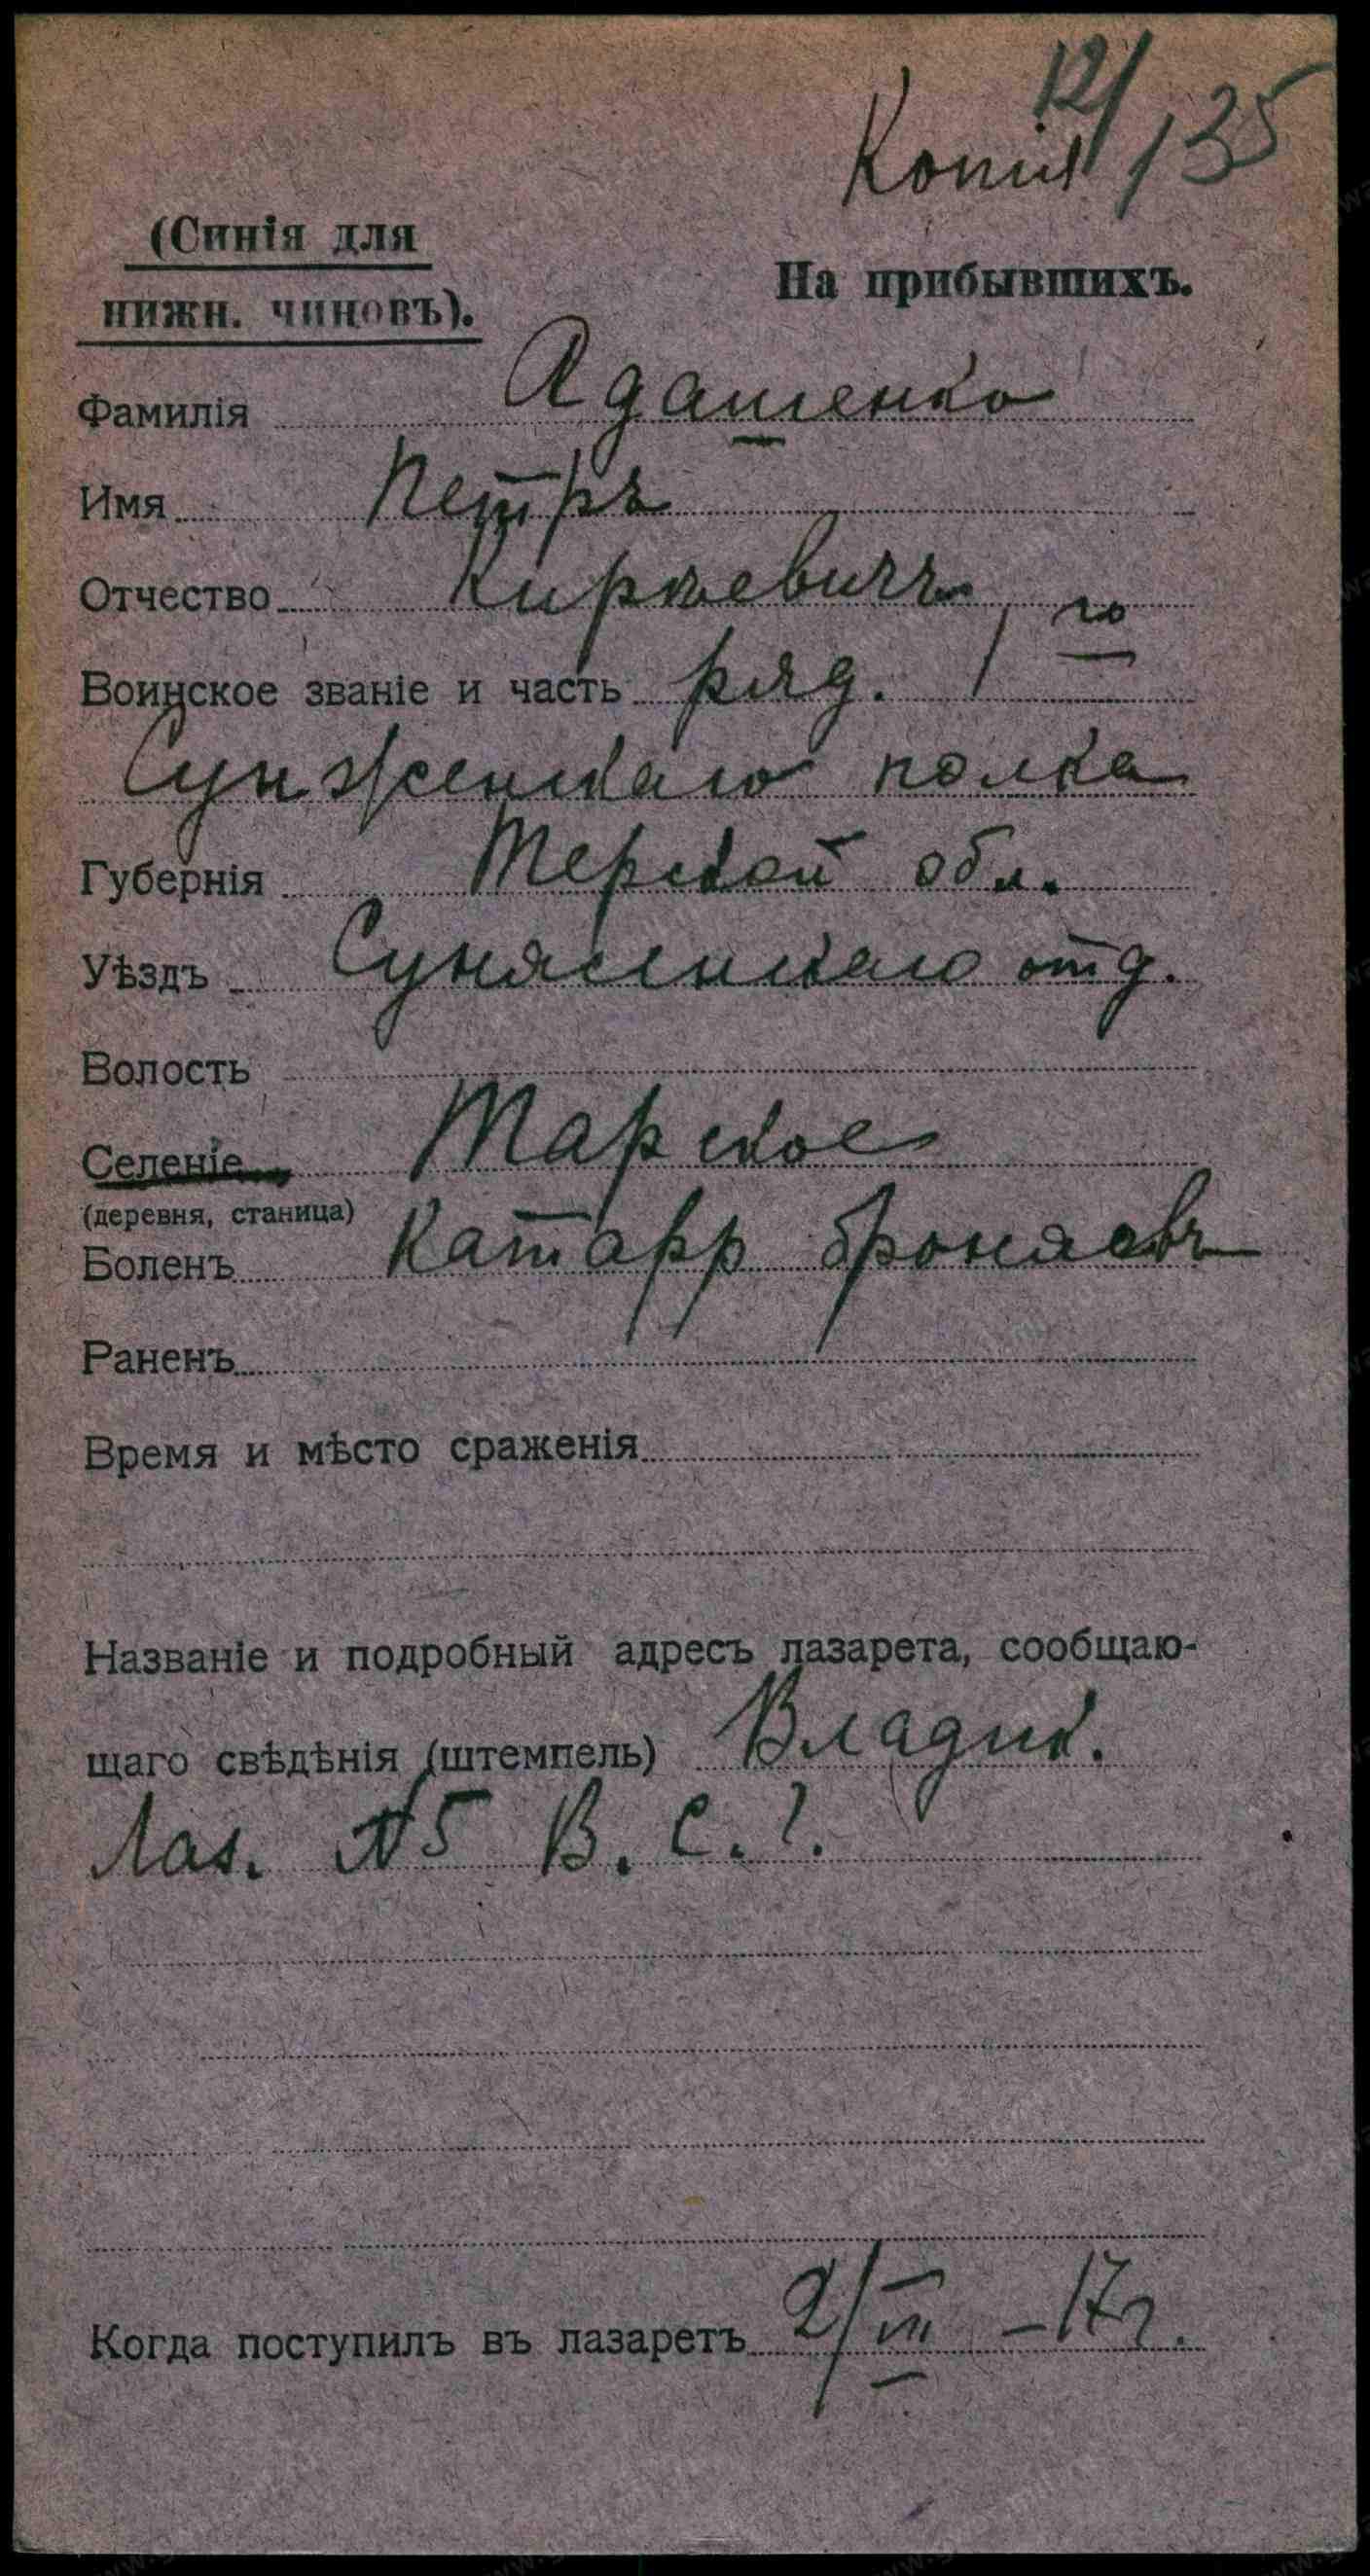 12/135
Копія
(Синія для
нижн. чиновъ).
На прибывшихъ.
Фамилія Адашенко
Имя Петръ
Отчество Киръевичъ
Воинское званіе и часть ряд. 1го
Сунженскаго полка
Губернія Терской обл.
Уѣздъ Сунженскаго отд.
Волость
Селеніе Тарское
(деревня, станица)
Боленъ Катарр бронховъ
Раненъ
Время и мѣсто сраженія
Названіе и подробный адресъ лазарета, сообщаю-
щаго свѣдѣнія (штемпель) Владик.
Лаз. №5 В. С. ?.
Когда поступилъ въ лазаретъ 2/III -17г.